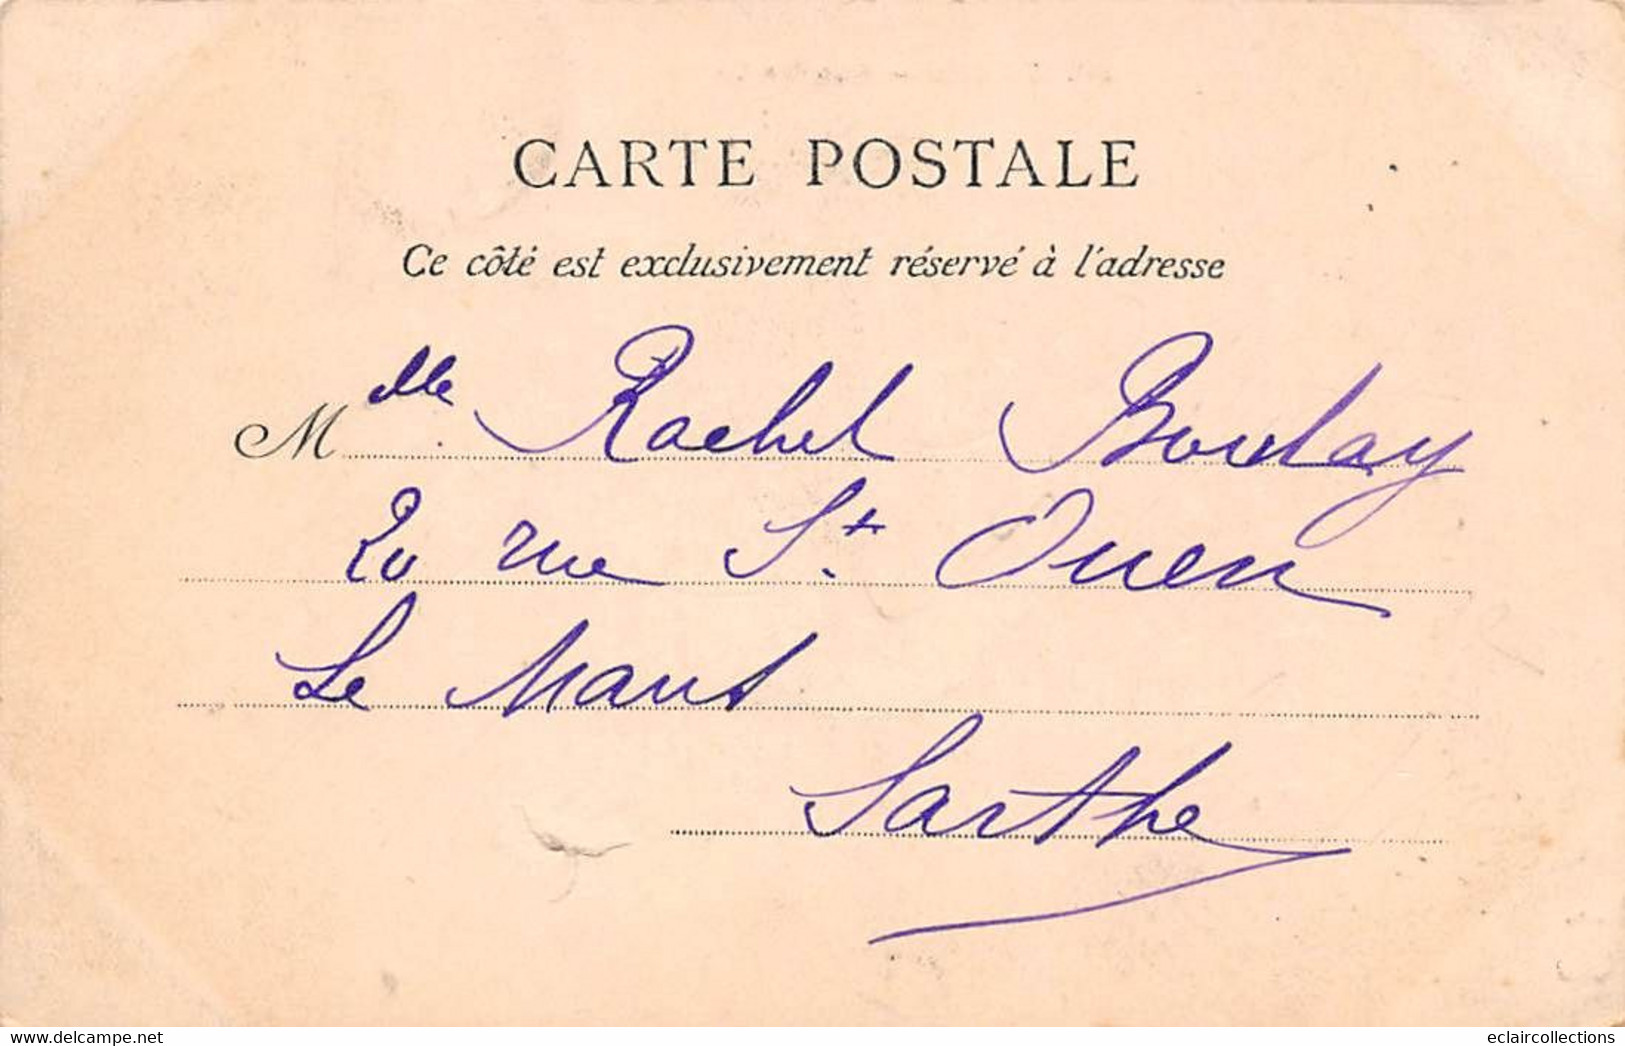 CARTE POSTALE
Ce côté est exclusivement réservé à l'adresse
Mdlle Rachel Bourlay
20 rue St. Ouen
Le Mans
Sarthe
www.delcampe.net
eclaircollections